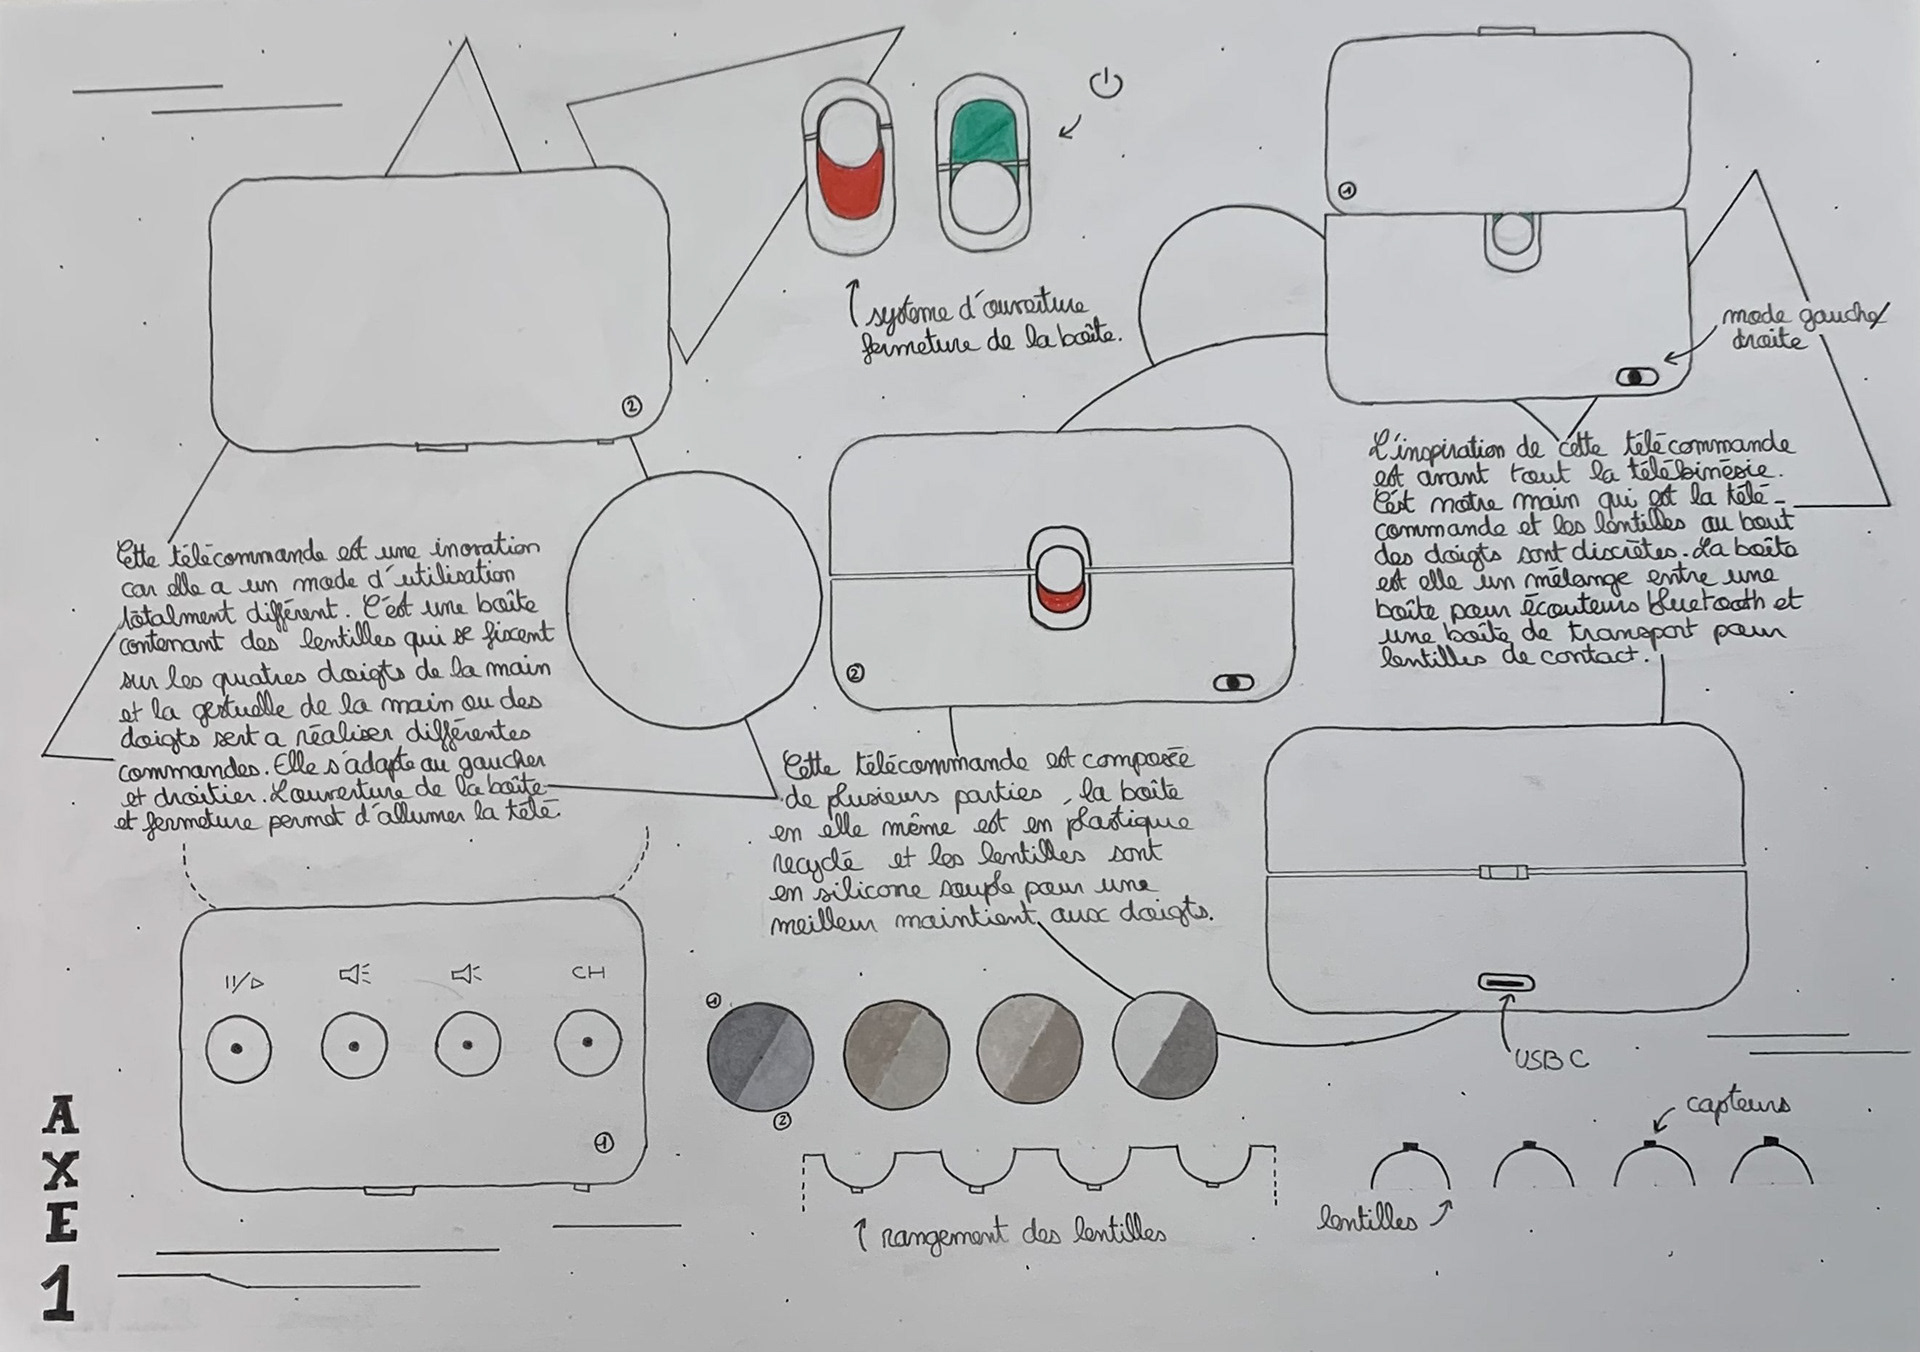 système d'ouverture
fermeture de la boîte.
1
mode gauche/
droite
2
L'inspiration de cette télécommande
est avant tout la télékinésie.
C'est notre main qui est la télé-
commande et les lentilles au bout
des doigts sont discrètes. La boîte
est elle un mélange entre une
boîte pour écouteurs bluetooth et
une boîte de transport pour
lentilles de contact.
Cette télécommande est une inovation
car elle a un mode d'utilisation
totalment différent. C'est une boîte
contenant des lentilles qui se fixent
sur les quatres doigts de la main
et la gestuelle de la main ou des
doigts sert a réaliser différentes
commandes. Elle s'adapte au gaucher
et droitier. L'ouverture de la boîte
et fermeture permet d'allumer la télé.
2
Cette télécommande est composée
de plusieurs parties, la boîte
en elle même est en plastique
recyclé et les lentilles sont
en silicone souple pour une
meilleur maintient aux doigts.
CH
1
1
2
USB C
capteurs
lentilles
rangement des lentilles
AXE 1